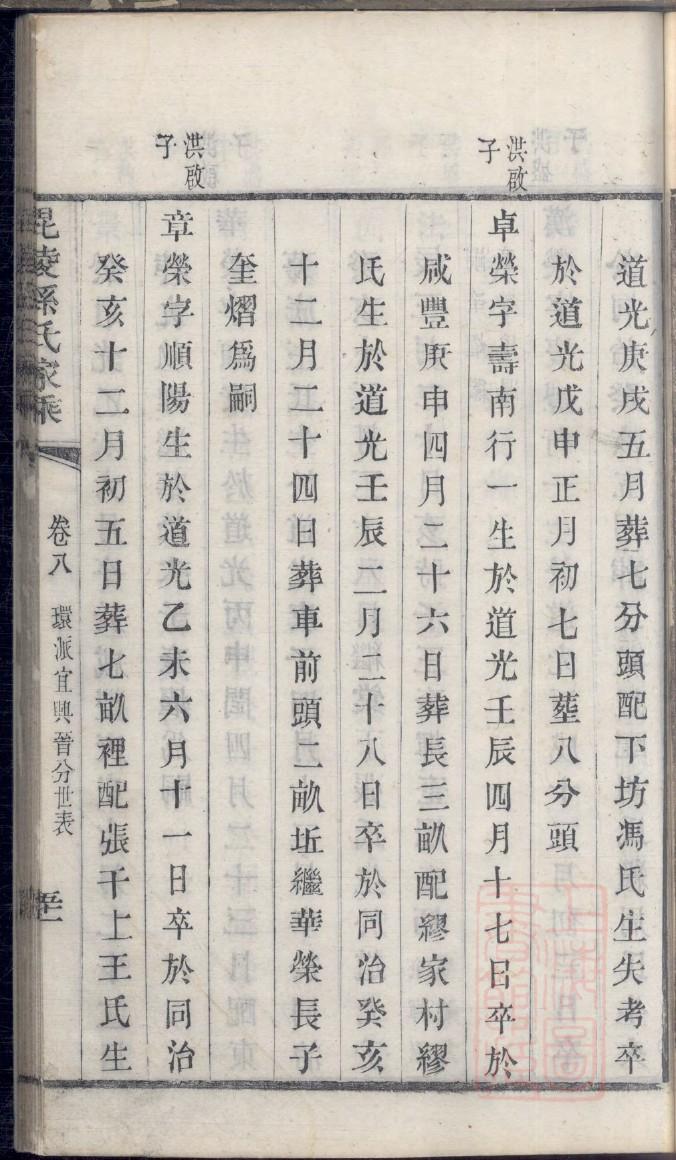 道光庚戌五月葬七分頭配下坊馮氏生失考卒
於道光戊申正月初七日塟八分頭
洪啟子
卓榮字壽南行一生於道光壬辰四月十七日卒於
咸豐庚申四月二十六日葬長三畝配繆家村繆
氏生於道光壬辰二月二十八日卒於同治癸亥
十二月二十四日葬車前頭二畝坵繼華榮長子
奎熠爲嗣
洪啟子
章榮字順陽生於道光乙未六月十一日卒於同治
癸亥十二月初五日葬七畝裡配張干上王氏生
毘陵孫氏家乘
卷八 環派宜興晉分世表